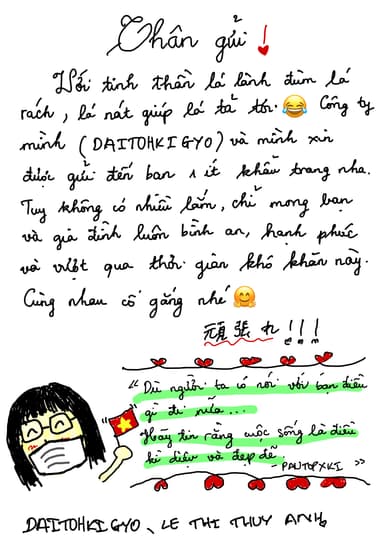 Thân gửi !
Với tinh thần lá lành đùm lá
rách, lá nát giúp lá tả tơi.😂 Công ty
mình (DAITOHKIGYO) và mình xin
được gửi đến bạn 1 ít khẩu trang nha.
Tuy không có nhiều lắm, chỉ mong bạn
và gia đình luôn bình an, hạnh phúc
và vượt qua thời gian khó khăn này.
Cùng nhau cố gắng nhé 🤗
頑張れ!!!
" Dù người ta có nói với bạn điều
gì đi nữa ...
Hãy tin rằng cuộc sống là điều
kì diệu và đẹp đẽ.
PAUTOPXKI "
DAITOHKIGYO、LE THI THUY ANH